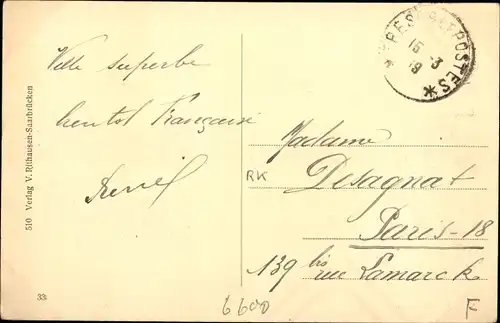 Ville superbe
bientot Française
TRESOR ET POSTES
15 - 3
19
Madame
Desagnat
Paris - 18
139 bis rue Lamarck
RK
510 Verlag V. Rilhausen-Saarbrücken
33
6600
F